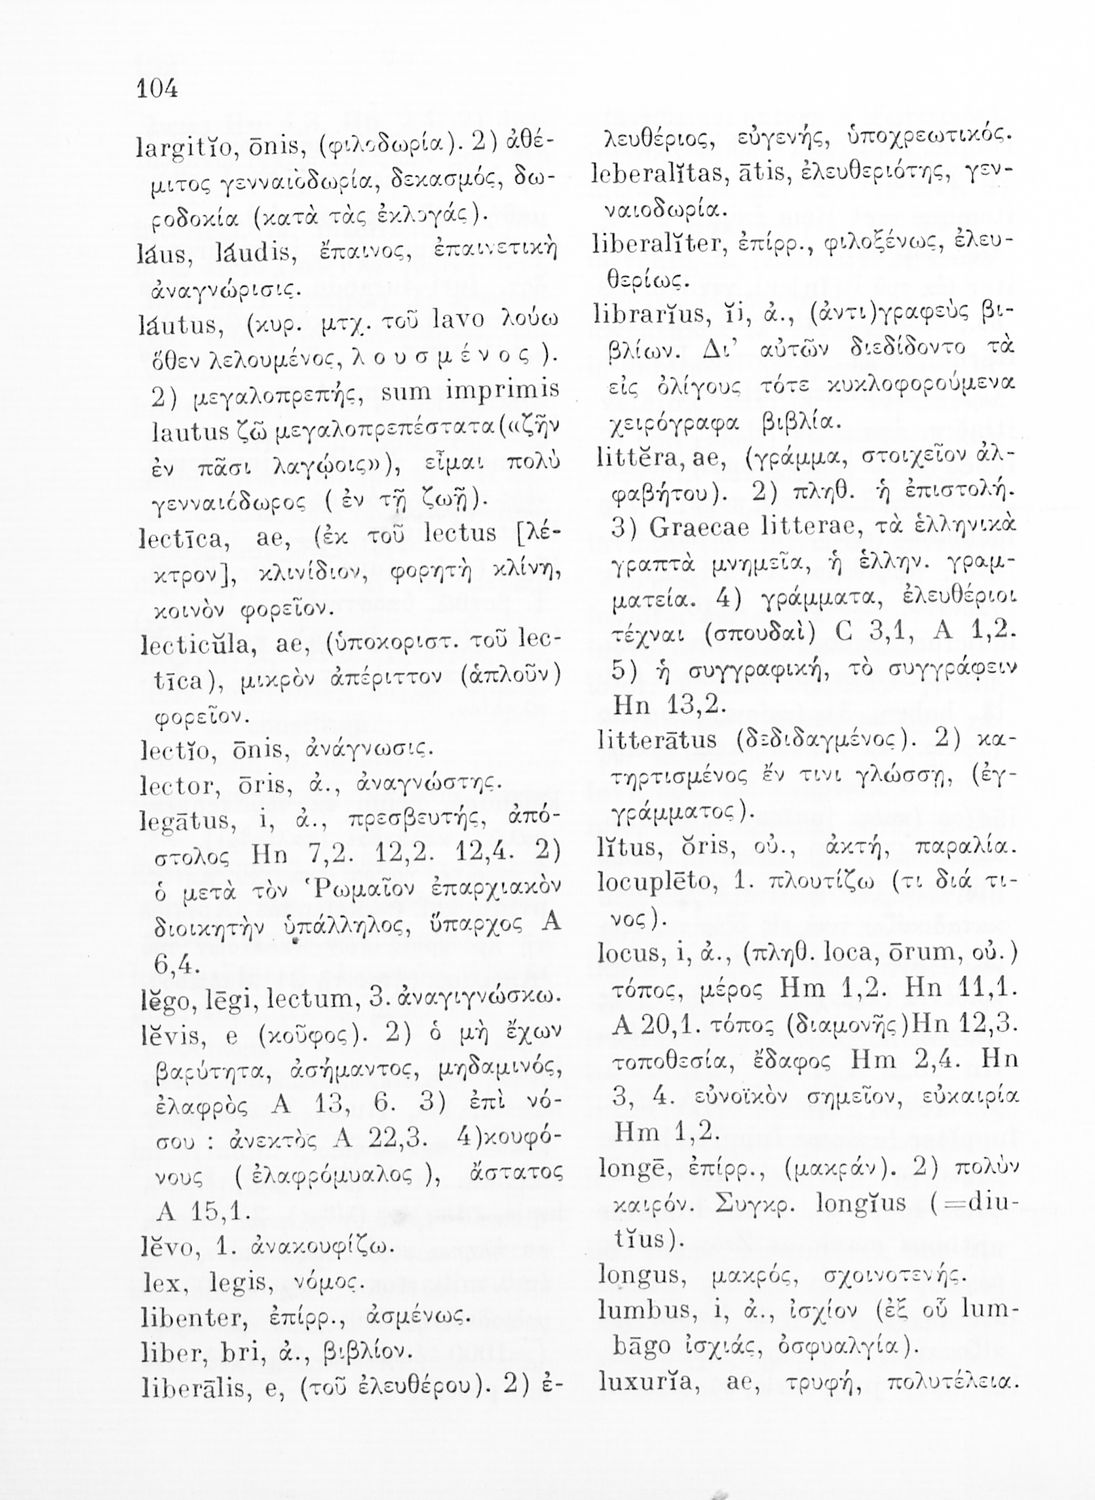 104
largitĭo, ōnis, (φιλοδωρία). 2) ἀθέ-
μιτος γενναιοδωρία, δεκασμός, δω-
ροδοκία (κατὰ τὰς ἐκλογάς).
láus, láudis, ἔπαινος, ἐπαινετικὴ
ἀναγνώρισις.
láutus, (κυρ. μτχ. τοῦ lavo λούω
ὅθεν λελουμένος, λουσμένος).
2) μεγαλοπρεπής, sum imprimis
lautus ζῶ μεγαλοπρεπέστατα («ζῆν
ἐν πᾶσι λαγῴοις»), εἶμαι πολὺ
γενναιόδωρος (ἐν τῇ ζωῇ).
lectīca, ae, (ἐκ τοῦ lectus [λέ-
κτρον], κλινίδιον, φορητὴ κλίνη,
κοινὸν φορεῖον.
lecticŭla, ae, (ὑποκοριστ. τοῦ lec-
tīca), μικρὸν ἀπέριττον (ἁπλοῦν)
φορεῖον.
lectĭo, ōnis, ἀνάγνωσις.
lector, ōris, ἀ., ἀναγνώστης.
legātus, i, ἀ., πρεσβευτής, ἀπό-
στολος Hn 7,2. 12,2. 12,4. 2)
ὁ μετὰ τὸν Ῥωμαῖον ἐπαρχιακὸν
διοικητὴν ὑπάλληλος, ὕπαρχος A
6,4.
lĕgo, lēgi, lectum, 3. ἀναγιγνώσκω.
lĕvis, e (κοῦφος). 2) ὁ μὴ ἔχων
βαρύτητα, ἀσήμαντος, μηδαμινός,
ἐλαφρὸς A 13, 6. 3) ἐπὶ νό-
σου : ἀνεκτὸς A 22,3. 4) κουφό-
νους (ἐλαφρόμυαλος), ἄστατος
A 15,1.
lĕvo, 1. ἀνακουφίζω.
lex, legis, νόμος.
libenter, ἐπίρρ., ἀσμένως.
liber, bri, ἀ., βιβλίον.
liberālis, e, (τοῦ ἐλευθέρου). 2) ἐ-
λευθέριος, εὐγενής, ὑποχρεωτικός.
leberalĭtas, ātis, ἐλευθεριότης, γεν-
ναιοδωρία.
liberalĭter, ἐπίρρ., φιλοξένως, ἐλευ-
θερίως.
librarĭus, ĭi, ἀ., (ἀντι)γραφεὺς βι-
βλίων. Δι’ αὐτῶν διεδίδοντο τὰ
εἰς ὀλίγους τότε κυκλοφορούμενα
χειρόγραφα βιβλία.
littĕra, ae, (γράμμα, στοιχεῖον ἀλ-
φαβήτου). 2) πληθ. ἡ ἐπιστολή.
3) Graecae litterae, τὰ ἑλληνικὰ
γραπτὰ μνημεῖα, ἡ ἑλλην. γραμ-
ματεία. 4) γράμματα, ἐλευθέριοι
τέχναι (σπουδαὶ) C 3,1, A 1,2.
5) ἡ συγγραφική, τὸ συγγράφειν
Hn 13,2.
litterātus (δεδιδαγμένος). 2) κα-
τηρτισμένος ἔν τινι γλώσσῃ, (ἐγ-
γράμματος).
lĭtus, ŏris, οὐ., ἀκτή, παραλία.
locuplēto, 1. πλουτίζω (τι διά τι-
νος).
locus, i, ἀ., (πληθ. loca, ōrum, οὐ.)
τόπος, μέρος Hm 1,2. Hn 11,1.
A 20,1. τόπος (διαμονῆς) Hn 12,3.
τοποθεσία, ἔδαφος Hm 2,4. Hn
3, 4. εὐνοϊκὸν σημεῖον, εὐκαιρία
Hm 1,2.
longē, ἐπίρρ., (μακράν). 2) πολὺν
καιρόν. Συγκρ. longĭus (=diu-
tĭus).
longus, μακρός, σχοινοτενής.
lumbus, i, ἀ., ἰσχίον (ἐξ οὗ lum-
bāgo ἰσχιάς, ὀσφυαλγία).
luxurĭa, ae, τρυφή, πολυτέλεια.